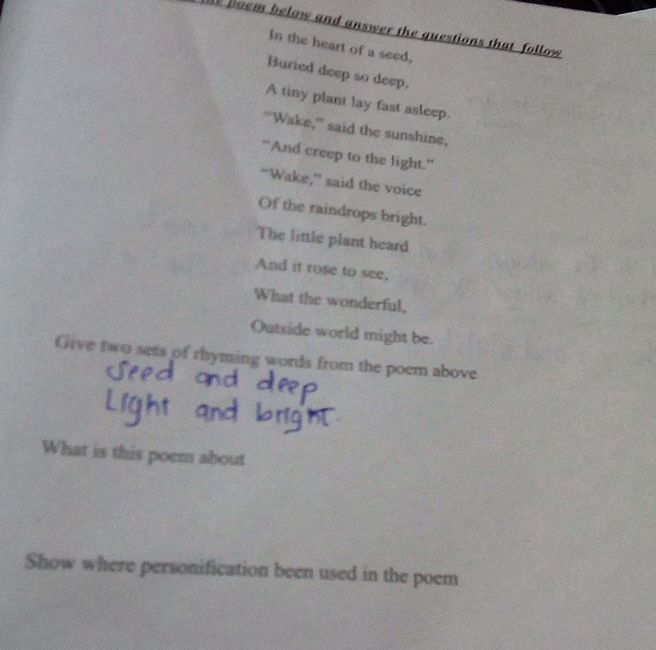 the poem below and answer the questions that follow
In the heart of a seed,
Buried deep so deep,
A tiny plant lay fast asleep.
"Wake," said the sunshine,
"And creep to the light."
"Wake," said the voice
Of the raindrops bright.
The little plant heard
And it rose to see,
What the wonderful,
Outside world might be.
Give two sets of rhyming words from the poem above
Seed and deep
Light and bright.
What is this poem about
Show where personification been used in the poem